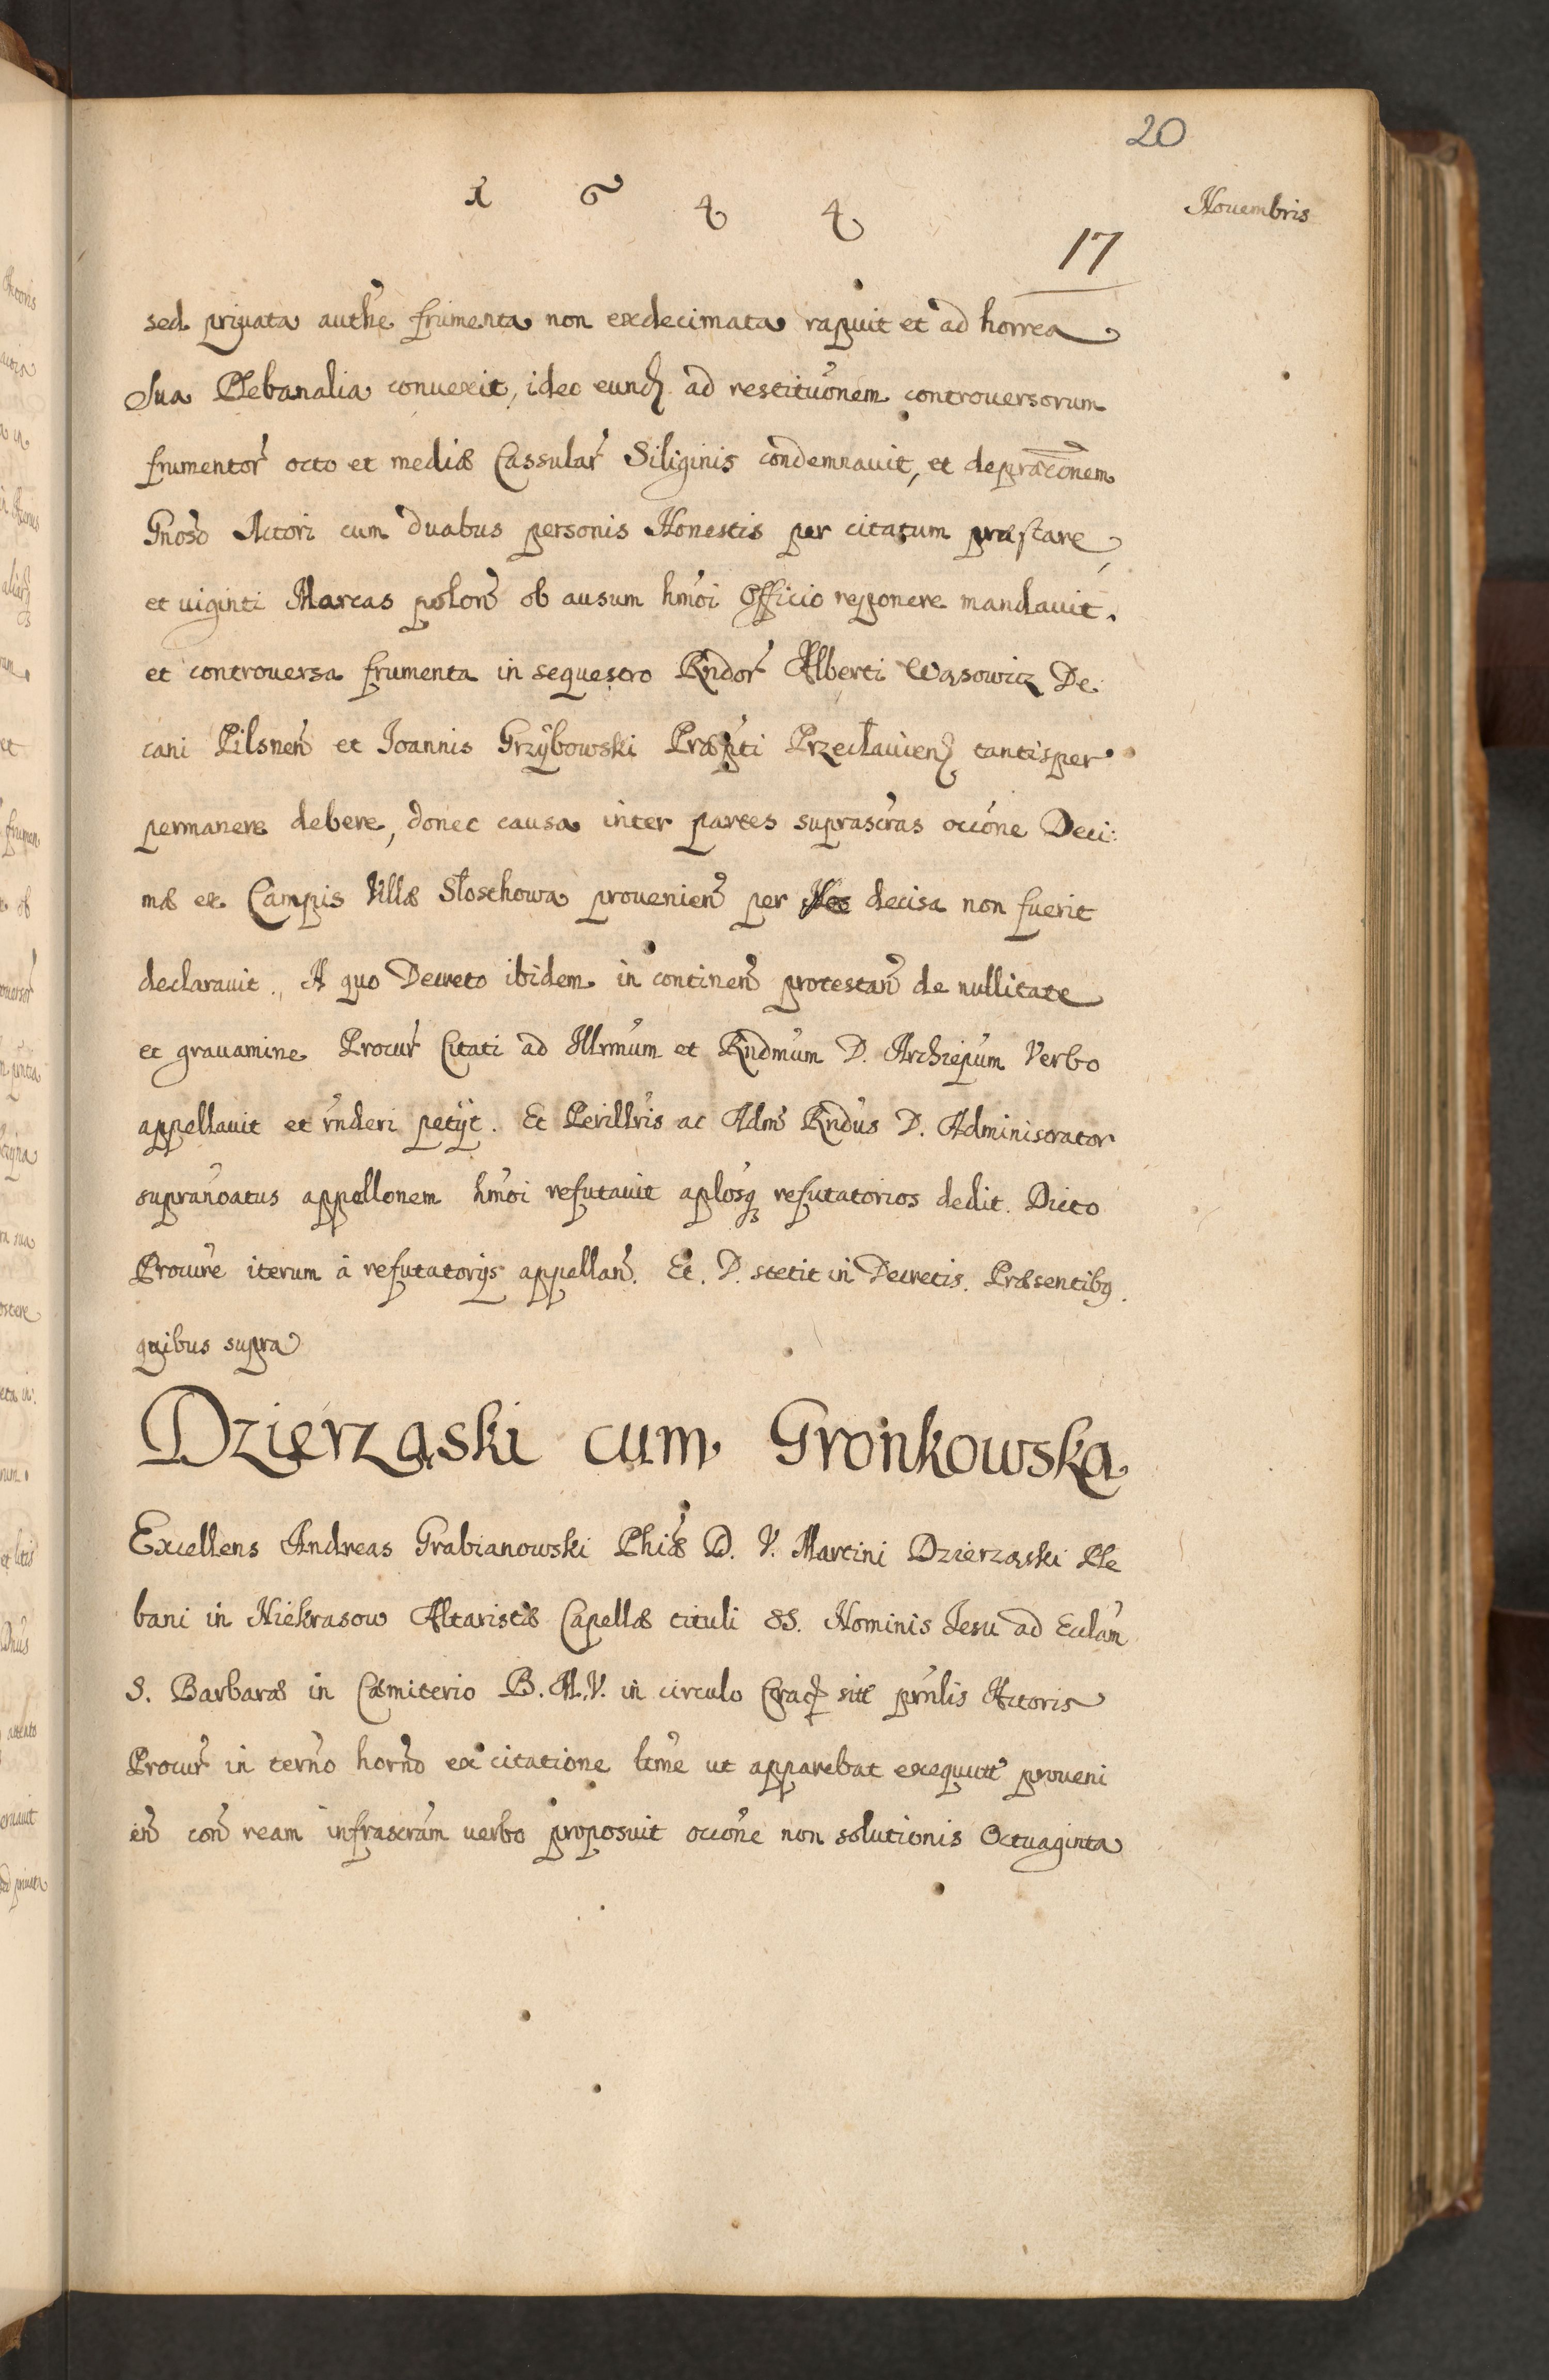 20
1 6 4 4
Nouembris
17
sed priuata authe frumenta non exdecimata rapuit et ad horrea
sua Plebanalia conuexit, ideo eund ad restituonem controuersorum
frumentor octo et mediæ Cassular Siliginis condemnauit, et depræcōnem
Gnoso Actori cum duabus personis Honestis per citatum præstare,
et uiginti Marcas polon ob ausum hmoi Officio reponere mandauit.
et controuersa frumenta in sequestro Rndor Alberti Wąsowicz De:
cani Pilsnen et Joannis Grzÿbowski Præpti Przecłauien tantisper
permanere debere, donec causa inter partes suprascras occone Deci:
mæ ex Campis Villæ Słochowa prouenien per decisa non fuerit
declarauit. A quo Decreto ibidem in continen protestan de nullitate
et grauamine Procur Citati ad Illrmum et Rndmum D. Archiepum Verbo
appellauit et rnderi petÿt. Et Perillris ac Adm Rndus D. Administrator
supranoatus appellonem hmoi refutauit aplosq refutatorios dedit. Dicto
Procure iterum à refutatorÿs appellan. Et. D. stetit in Decretis. Præsentibq
quibus supra
Dzierząski cum Gronkowska
Excellens Andreas Grabianowski Phiæ D. V. Martini Dzierząski Ple
bani in Niekrasow Altaristæ Capellæ tituli SS. Nominis Jesu ad Eccłam
S. Barbaræ in Cæmiterio B. M. V. in circulo Crac sitæ prnlis Actoris
Procur in termo horno ex citatione ltme ut apparebat exequut proueni
en con ream infrascram uerbo proposuit occone non solutionis Octuaginta